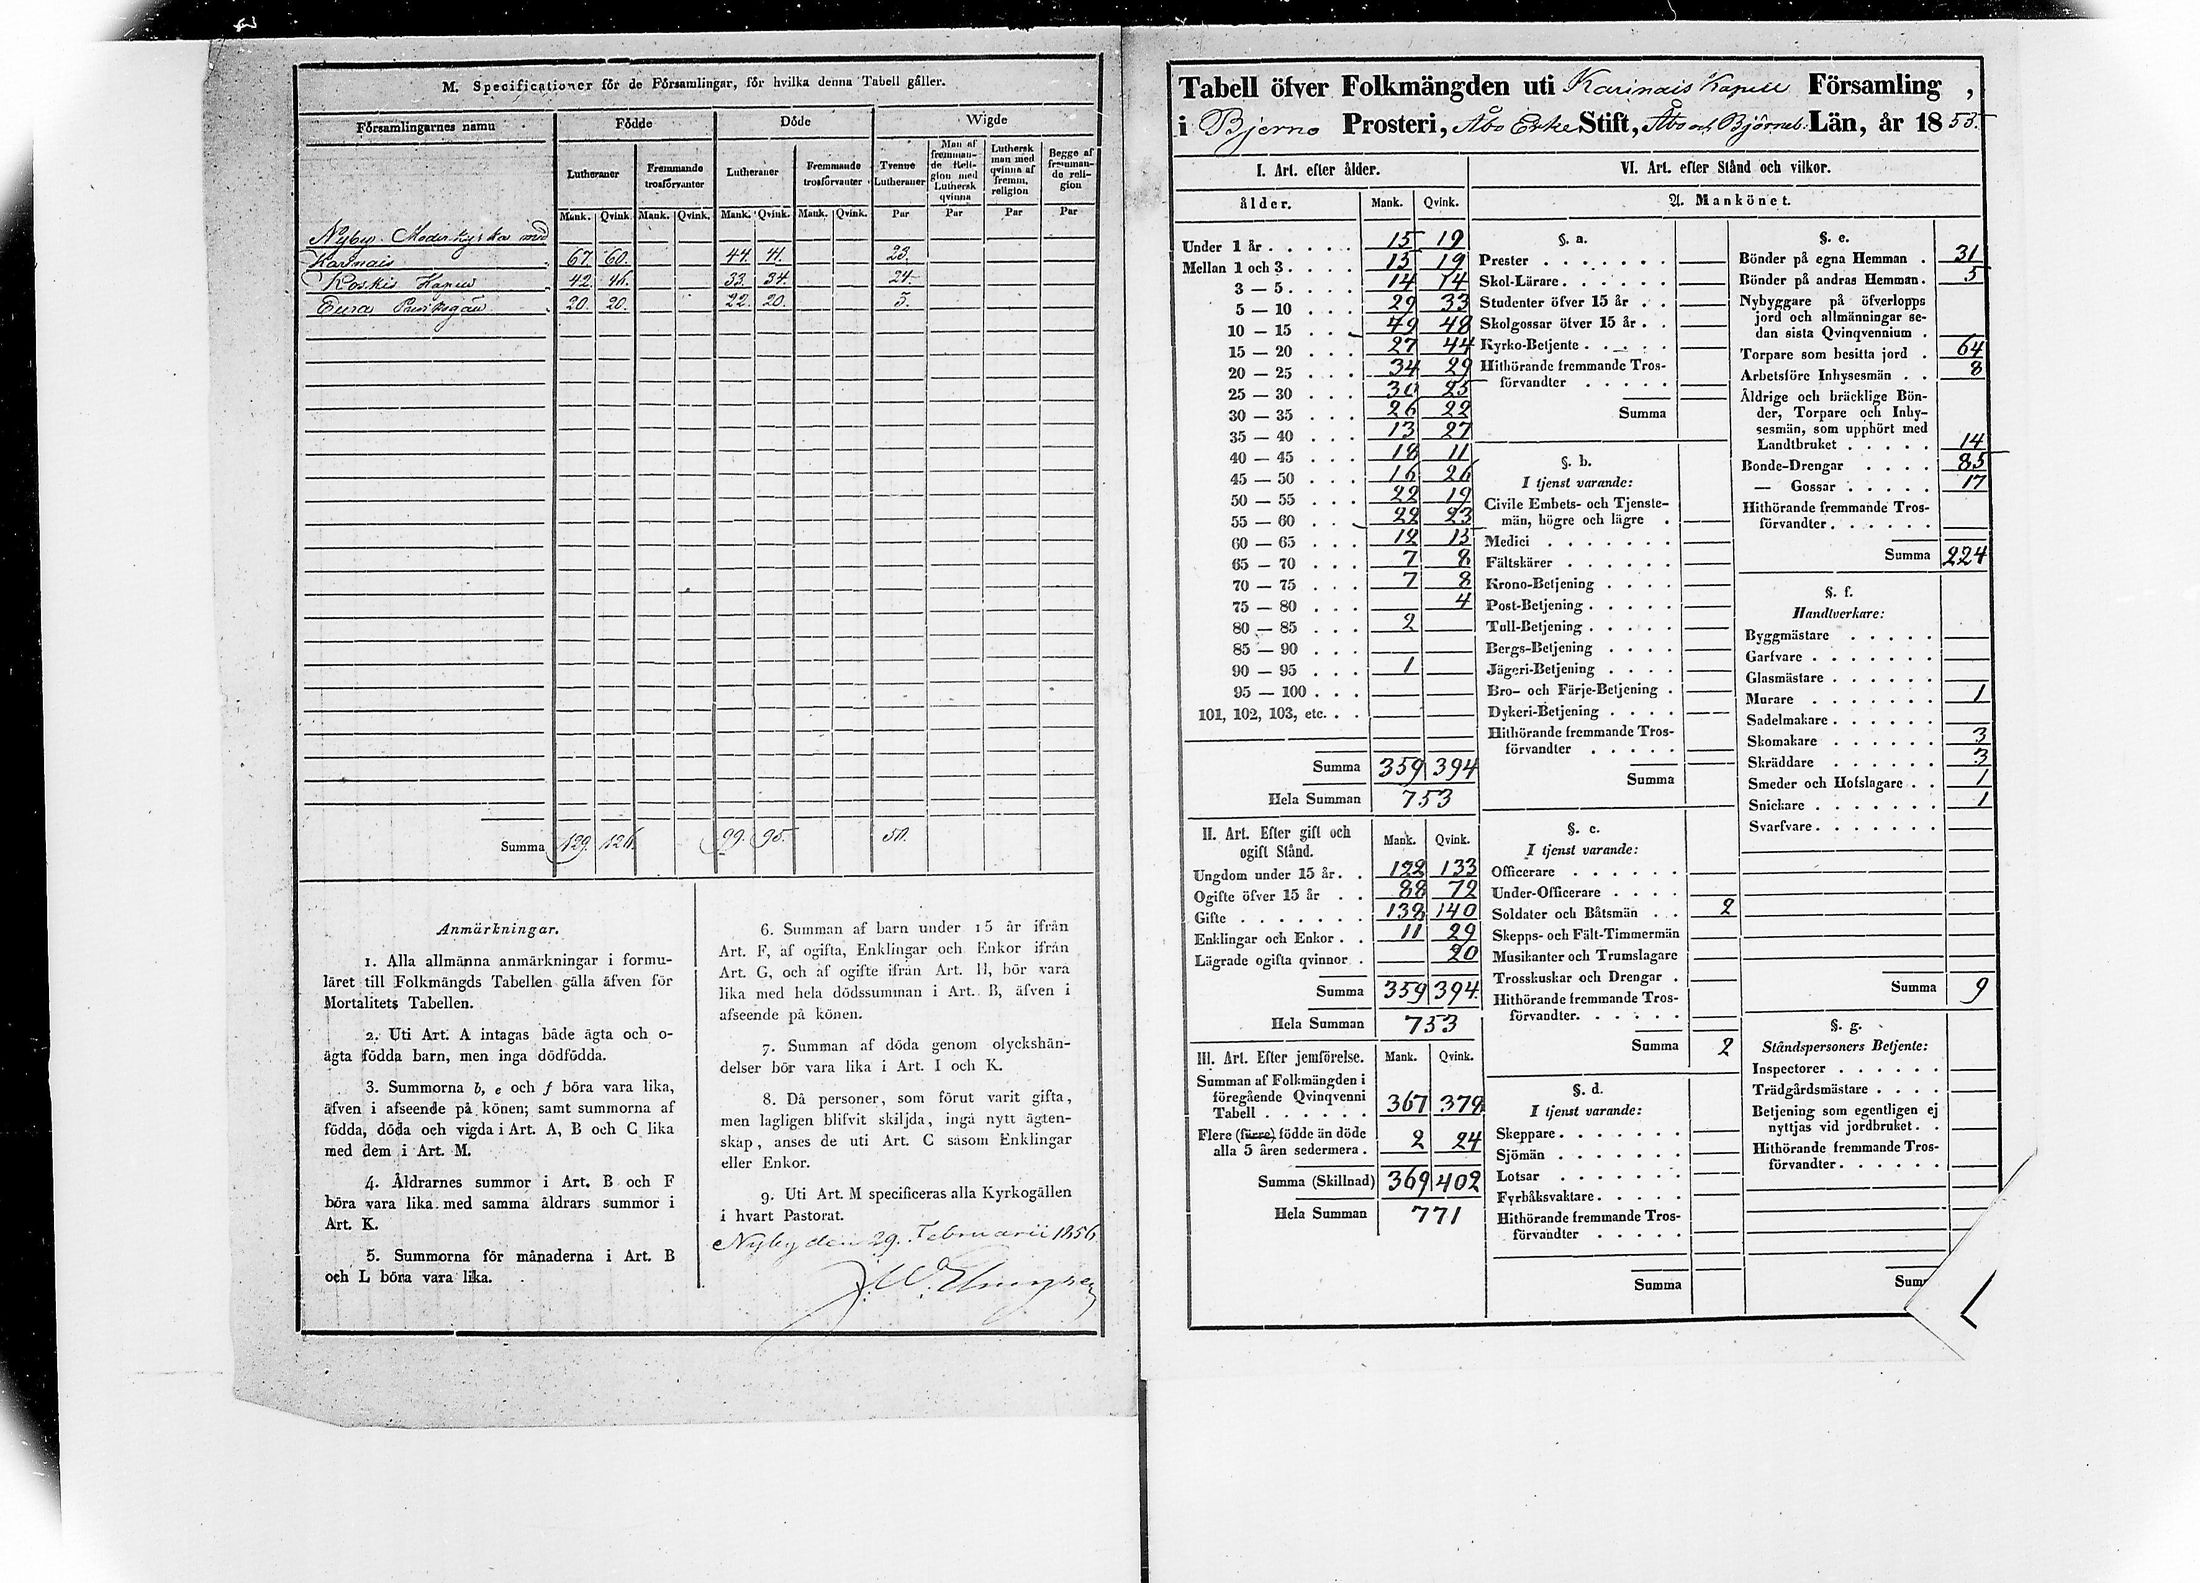 M. Specificationer för de Församlingar, för hvilka denna Tabell gäller.
Församlingarnes namn Födde Döde Wigde
Lutheraner Fremmande trosförvanter Lutheraner Fremmande trosförvanter Tvenne Lutheraner Man af fremmande Religion med Luthersk qvinna Luthersk man med qvinna af fremm. religion Begge af fremmande religion
Mank. Qvink. Mank. Qvink. Mank. Qvink. Mank. Qvink. Par Par Par Par
Nyby Moderkyrka med
Karinais 67. 60. 44. 41. 23.
Koskis Kapell 42. 46. 33. 34. 24.
Eura 20. 20. 22. 20. 3.
Summa 129. 126. 99. 95. 50.
Anmärkningar.
1. Alla allmänna anmärkningar i formu-
läret till Folkmängds Tabellen gälla äfven för
Mortalitets Tabellen.
2. Uti Art. A intagas både ägta och o-
ägta födda barn, men inga dödfödda.
3. Summorna b, e och f böra vara lika,
äfven i afseende på könen; samt summorna af
födda, döda och vigda i Art. A, B och C lika
med dem i Art. M.
4. Åldrarnes summor i Art. B och F
böra vara lika med samma åldrars summor i
Art. K.
5. Summorna för månaderna i Art. B
och L böra vara lika.
6. Summan af barn under 15 år ifrån
Art. F, af ogifta, Enklingar och Enkor ifrån
Art. G, och af ogifte ifrån Art. H, bör vara
lika med hela dödssumman i Art. B, äfven i
afseende på könen.
7. Summan af döda genom olyckshän-
delser bör vara lika i Art. I och K.
8. Då personer, som förut varit gifta,
men lagligen blifvit skiljda, ingå nytt ägten-
skap, anses de uti Art. C såsom Enklingar
eller Enkor.
9. Uti Art. M specificeras alla Kyrkogällen
i hvart Pastorat.
Nyby den 29. Februarii 1856
Tabell öfver Folkmängden uti Karinais Kapell Församling,
i Bjerno Prosteri, Åbo Erke Stift, Åbo och Björneb. Län, år 1855.
I. Art. efter ålder.
ålder. Mank. Qvink.
Under 1 år 15 19
Mellan 1 och 3 15 19
3 — 5 14 14
5 — 10 29 33
10 — 15 49 48
15 — 20 27 44
20 — 25 34 29
25 — 30 30 25
30 — 35 26 22
35 — 40 13 27
40 — 45 18 11
45 — 50 16 26
50 — 55 22 19
55 — 60 22 23
60 — 65 12 15
65 — 70 7 8
70 — 75 7 8
75 — 80 4
80 — 85 2
85 — 90
90 — 95 1
95 — 100
101, 102, 103, etc.
Summa 359 394
Hela Summan 753
II. Art. Efter gift och
ogift Stånd. Mank. Qvink.
Ungdom under 15 år 122 133
Ogifte öfver 15 år 88 72
Gifte 138 140
Enklingar och Enkor 11 29
Lägrade ogifta qvinnor 20
Summa 359 394
Hela Summan 753
III. Art. Efter jemförelse. Mank. Qvink.
Summan af Folkmängden i
föregående Qvinqvenni
Tabell 367 378
Flere (färre) födde än döde
alla 5 åren sedermera 2 24
Summa (Skillnad) 369 402
Hela Summan 771
VI. Art. efter Stånd och vilkor.
A. Mankönet.
§. a.
Prester
Skol-Lärare
Studenter öfver 15 år
Skolgossar öfver 15 år
Kyrko-Betjente
Hithörande fremmande Tros-
förvandter
Summa
§. b.
I tjenst varande:
Civile Embets- och Tjenste-
män, högre och lägre
Medici
Fältskärer
Krono-Betjening
Post-Betjening
Tull-Betjening
Bergs-Betjening
Jägeri-Betjening
Bro- och Färje-Betjening
Dykeri-Betjening
Hithörande fremmande Tros-
förvandter
Summa
§. c.
I tjenst varande:
Officerare
Under-Officerare
Soldater och Båtsmän 2
Skepps- och Fält-Timmermän
Musikanter och Trumslagare
Trosskuskar och Drengar
Hithörande fremmande Tros-
förvandter
Summa 2
§. d.
I tjenst varande:
Skeppare
Sjömän
Lotsar
Fyrbåksvaktare
Hithörande fremmande Tros-
förvandter
Summa
§. e.
Bönder på egna Hemman 31
Bönder på andras Hemman 5
Nybyggare på öfverlopps
jord och allmänningar se-
dan sista Qvinqvennium
Torpare som besitta jord 64
Arbetsföre Inhysesmän 8
Åldrige och bräcklige Bön-
der, Torpare och Inhy-
sesmän, som upphört med
Landtbruket 14
Bonde-Drengar 85
— Gossar 17
Hithörande fremmande Tros-
förvandter
Summa 224
§. f.
Handtverkare:
Byggmästare
Garfvare
Glasmästare
Murare 1
Sadelmakare
Skomakare 3
Skräddare 3
Smeder och Hofslagare 1
Snickare 1
Svarfvare
Summa 9
§. g.
Ståndspersoners Betjente:
Inspectorer
Trädgårdsmästare
Betjening som egentligen ej
nyttjas vid jordbruket
Hithörande fremmande Tros-
förvandter